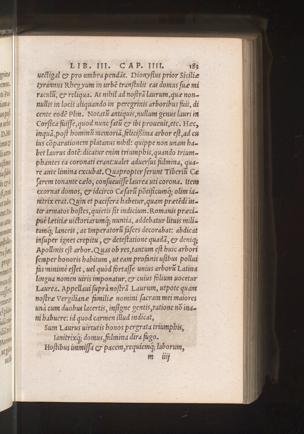 LIB. III. CAP. IIII. 183
uectigal & pro umbra pendāt. Dionysius prior Siciliæ
tyrannus Rhegyum in urbē transtulit eas domus suæ mi
raculū, & reliqua. At nihil ad nostrā laurum, quæ non-
nullis in locis aliquando in peregrinis arboribus fuit, di
cente eodē Plin. Notatū antiquis, nullum genus lauri in
Corsica fuisse, quod nunc satū & ibi prouenit, etc. Hæc,
inquā, post hominū memoriā, felicissima arbor est, ad cu
ius cōparationem platanus nihil: quippe non unam ha-
bet laurus dotē: dicatur enim triumphis, quando trium-
phantes ea coronati erant: ualet aduersus fulmina, qua-
re ante limina excubat. Quapropter ferunt Tiberiū Cæ
sarem tonante cælo, consueuisse laurea uti corona. Item
exornat domos, & idcirco Cæsarū pōtificumq; olim ia-
nitrix erat. Quin et pacifera habetur, quam prætēdi in-
ter armatos hostes, quietis sit indicium. Romanis præci-
puè lætitiæ uictoriarumq; nuntia, addebatur litıris mili-
tumq; lanceis, at Imperatorū fasces decorabat: abdicat
insuper ignes crepitu, & detestatione quadā, & deniq;
Apollinis est arbor. Quas ob res, tantum est huic arbori
semper honoris habitum, ut eam profanis usibus pollui
fas minimè esset, uel quòd fortasse unius arborū Latina
lingua nomen uiris imponatur, & cuius folium uocetur
Laurea. Appellaui suprà nostrā Laurum, utpote quam
nostræ Vergilianæ familiæ nomini sacram mei maiores
unà cum duobus lacertis, insigne gentis, ratione nō ina-
ni habuere: id quod carmen illud indicat,
Sum Laurus uirtutis honos pergrata triumphis,
Ianitrixq; domus, fulmina dira fugo.
Hostibus immissa & pacem, requiemq; laborum,
m iiij